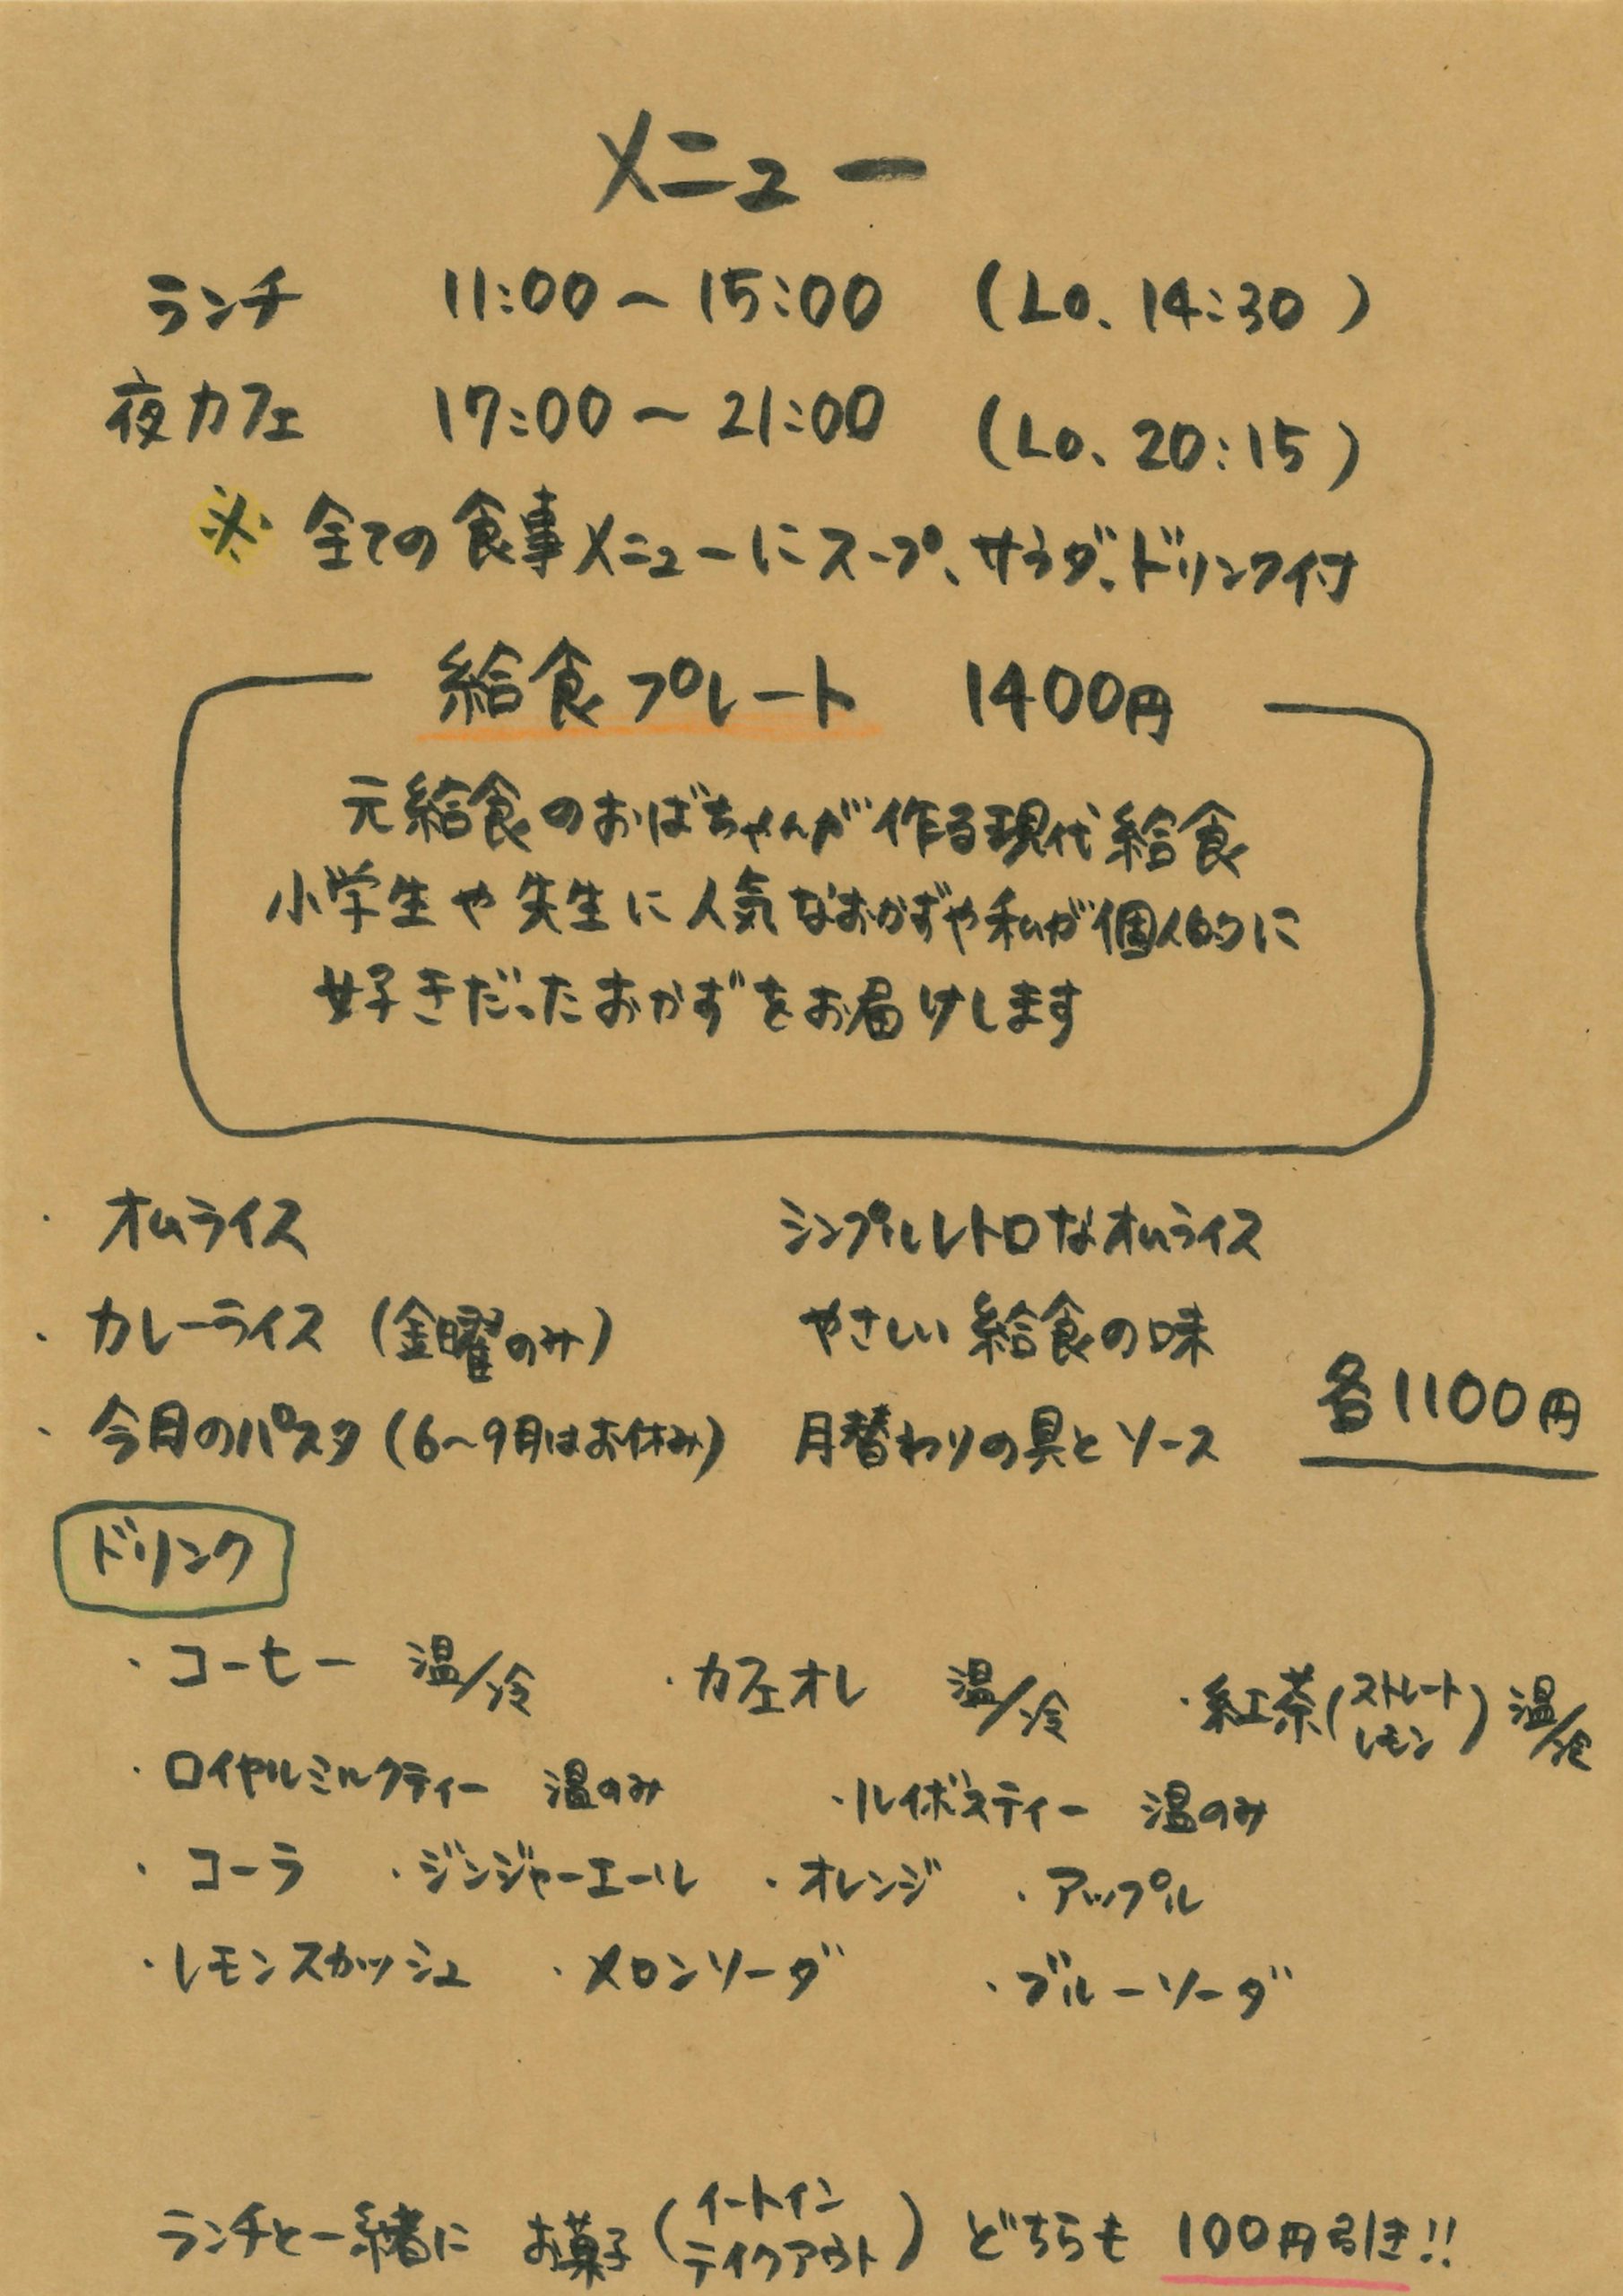 メニュー
ランチ 11:00〜15:00 (Lo、14:30)
夜カフェ 17:00〜21:00 (Lo、20:15)
※ 全ての食事メニューにスープ、サラダ、ドリンク付
給食プレート 1400円
元給食のおばちゃんが作る現代給食
小学生や先生に人気なおかずや私が個人的に
好きだったおかずをお届けします
・オムライス シンプルレトロなオムライス
・カレーライス (金曜のみ) やさしい給食の味
・今月のパスタ (6〜9月はお休み) 月替わりの具とソース 各1100円
ドリンク
・コーヒー 温/冷 ・カフェオレ 温/冷 ・紅茶(ストレート レモン) 温/冷
・ロイヤルミルクティー 温のみ ・ルイボスティー 温のみ
・コーラ ・ジンジャーエール ・オレンジ ・アップル
・レモンスカッシュ ・メロンソーダ ・ブルーソーダ
ランチと一緒に お菓子(イートイン テイクアウト) どちらも 100円引き!!